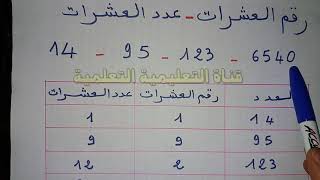 رقم العشرات - عدد العشرات
14 - 95 - 123 - 6540
قناة التعليمية التعلمية
العدد رقم العشرات عدد العشرات
14 1 1
95 9 9
123 2 12